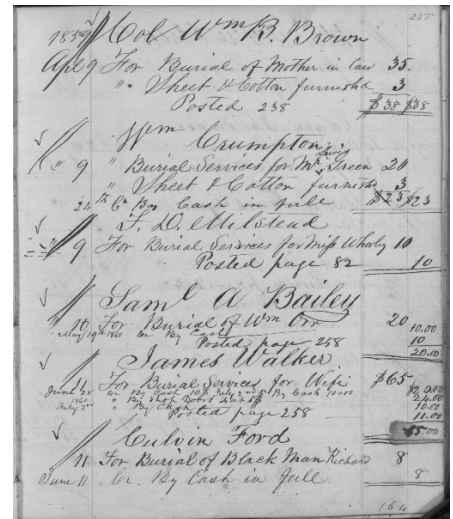 255
1859 Col Wm B. Brown
Apl 9 For Burial of Mother in law 35.
" Sheet & Cotton furnishd 3
Posted 238 $38 $38
Wm Crumpton
" 9 " Burial Services for Mr Green 20
" Sheet & Cotton furnishd 3
24th Cr By Cash in full $23 $23
F. D. Milstead
" 9 For Burial Services for Miss Whorley 10
Posted page 82 10
Saml A Bailey
" 10 For Burial of Wm Orr 20
May 19th 1860 Cr By Cash 10.00
Posted page 258 10
20.00
James Walker
" 11 For Burial Services for Wife $65
June 28 Cr By Cash 10$ July 2nd By Cash
1860
By Cash
Posted page 258 11.00
Culvin Ford
" 11 For Burial of Black Man Richard 8
June 11 Cr. By Cash in full 8
164